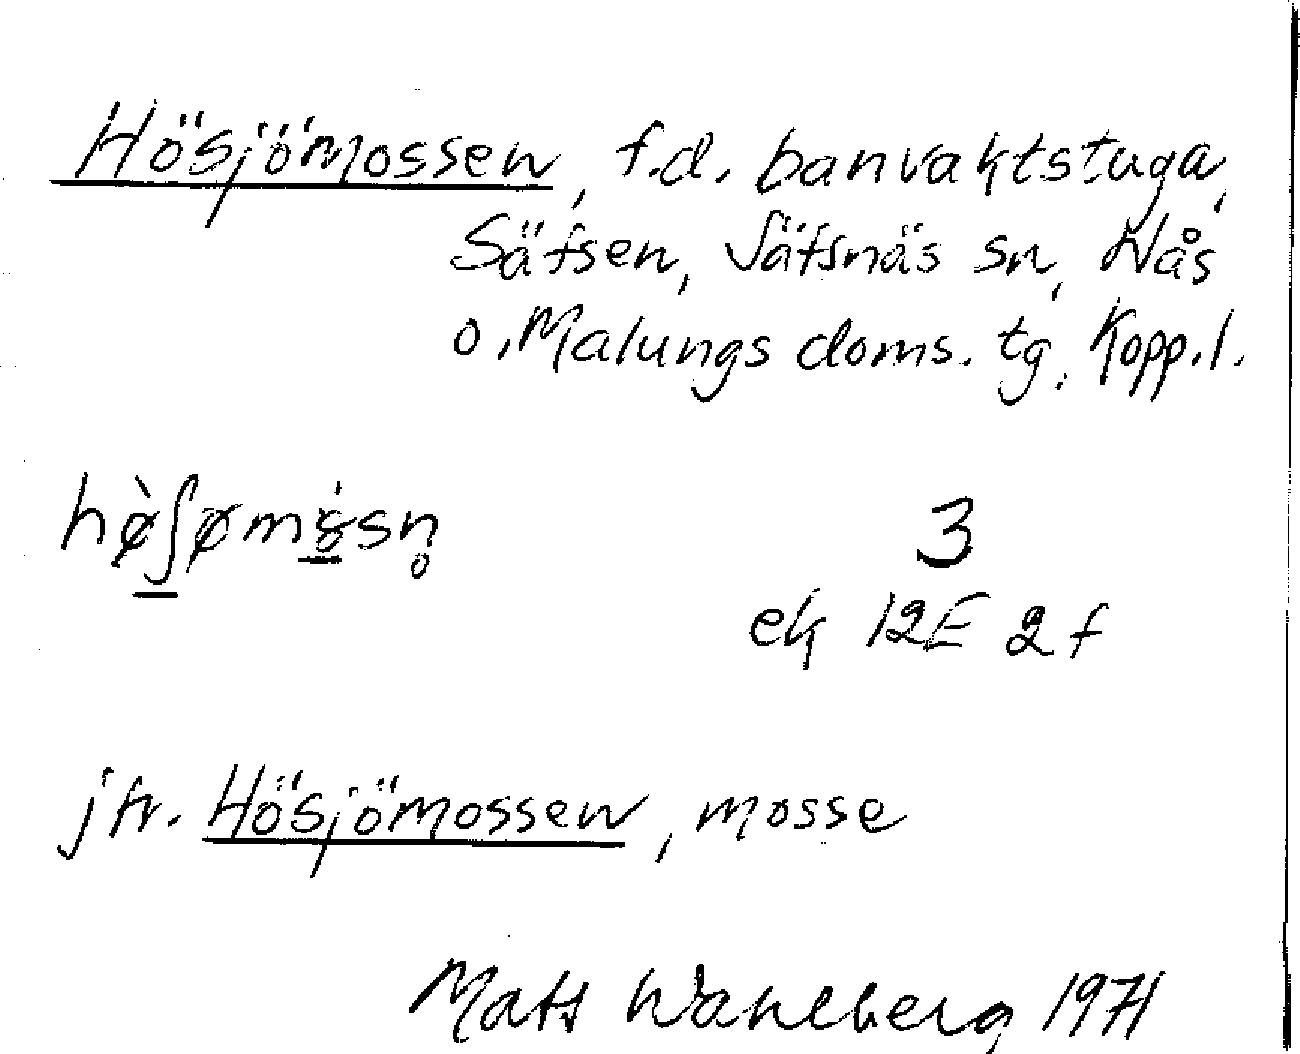 Hösjömossen, f.d. banvaktstuga,
Säfsen, Säfsnäs sn, Nås
o. Malungs doms. tg. Kopp.l.
3
ek 12E 2f
jfr. Hösjömossen, mosse
Mats Wahlberg 1971